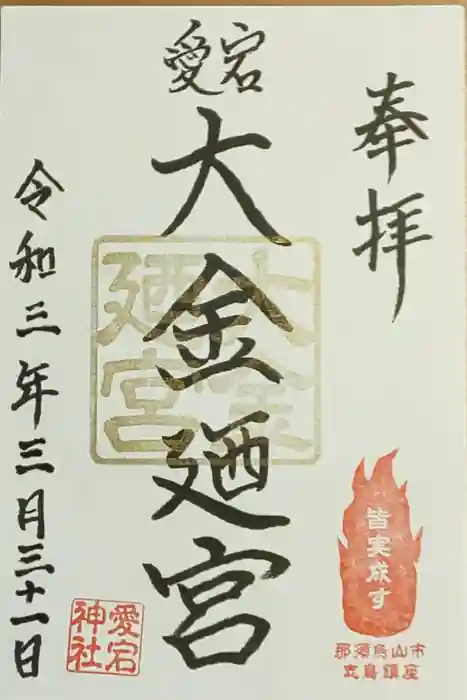 奉拝
愛宕
大金廼宮
大金
廼宮
令和三年三月三十一日
愛宕
神社
皆実成す
那須烏山市
志鳥鎮座